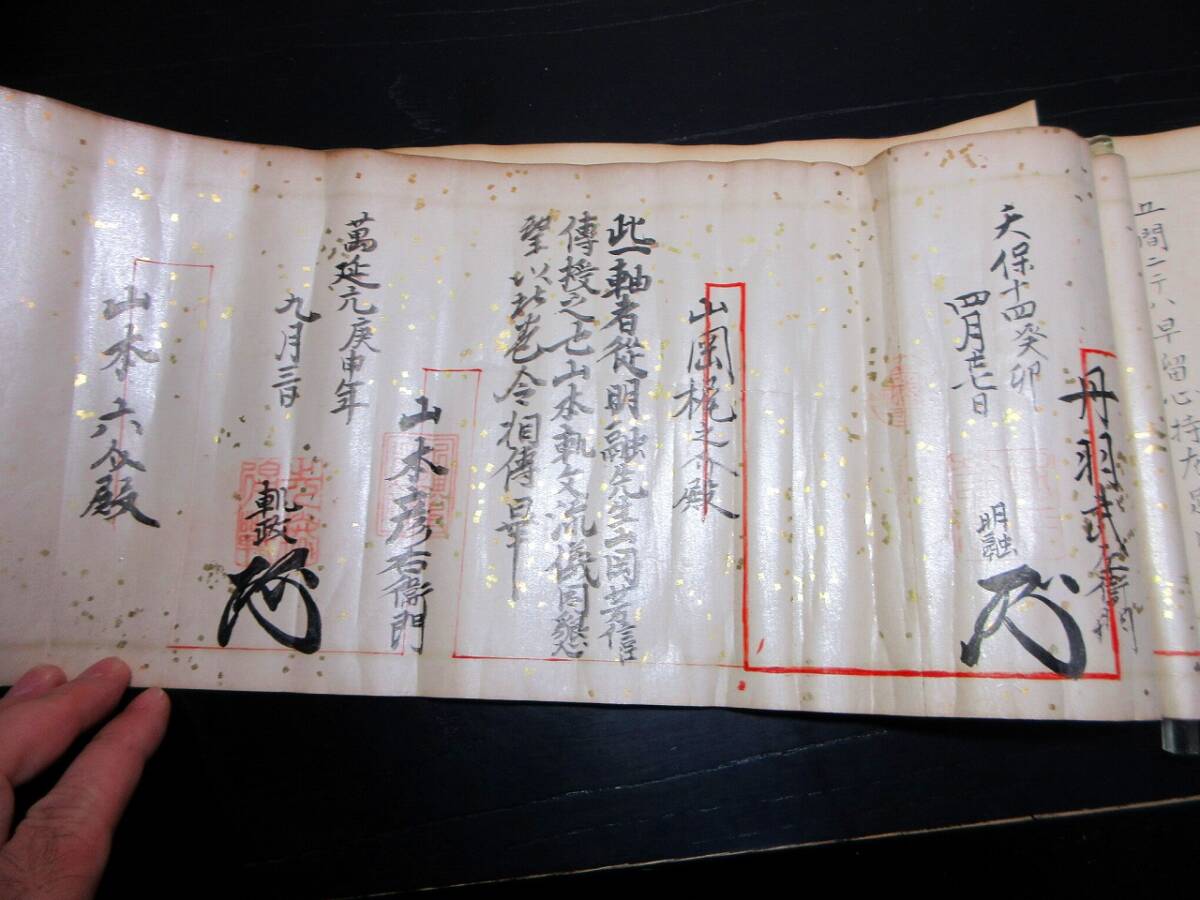 五間ニテハ早留心持
丹羽武右衛門
明融
天保十四癸卯
四月廿七日
山岡梶之介殿
此一軸者從明融先生山岡芳信
傳授之也山本軌文流儀因懇
望以此巻令相傳畢
山本彦右衛門
軌政
萬延元庚申年
九月三日
山本六介殿